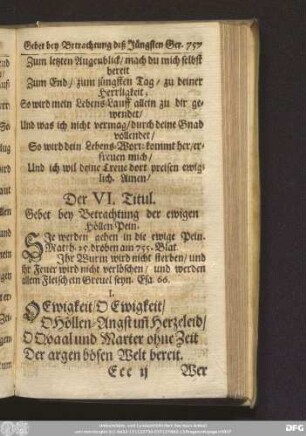 Gebet bey Betrachtung deß Jüngsten Ger. 757
Zum letzten Augenblick/ mach du mich selbst
bereit
Zum End/ zum jüngsten Tag/ zu deiner
Herrligkeit,
So wird mein Lebens-Lauff allein zu dir ge-
wendet/
Und was ich nicht vermag/ durch deine Gnad
vollendet/
So wird dein Lebens-Wort kommt her/ er-
freuen mich/
Und ich wil deine Treue dort preisen ewig-
lich. Amen/
Der VI. Titul.
Gebet bey Betrachtung der ewigen
Höllen-Pein.
SIe werden gehen in die ewige Pein.
Matth. 25. droben am 755. Blat.
Ihr Wurm wird nicht sterben/ und
ihr Feuer wird nicht verlöschen/ und werden
allem Fleisch ein Greuel seyn. Esa. 66.
I.
O Ewigkeit/ O Ewigkeit/
O Höllen-Angst uñ Herzeleid/
O Qvaal und Marter ohne Zeit
Der argen bösen Welt bereit.
Ccc ij Wer
DFG